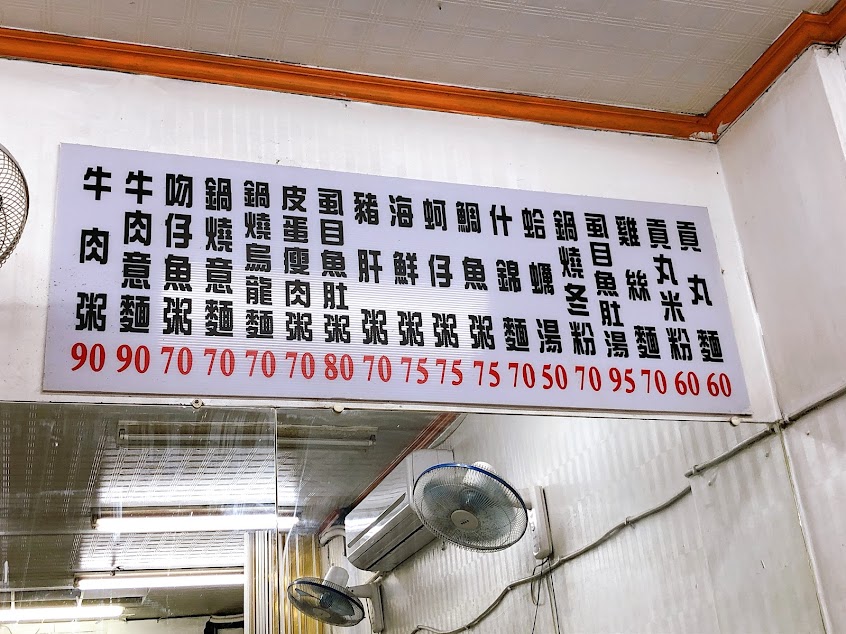 貢丸麵 60
貢丸米粉 60
雞絲麵 70
虱目魚肚湯 95
鍋燒冬粉 70
蛤蠣湯 50
什錦麵 70
鯛魚粥 75
蚵仔粥 75
海鮮粥 75
豬肝粥 70
虱目魚肚粥 80
皮蛋瘦肉粥 70
鍋燒烏龍麵 70
鍋燒意麵 70
吻仔魚粥 70
牛肉意麵 90
牛肉粥 90